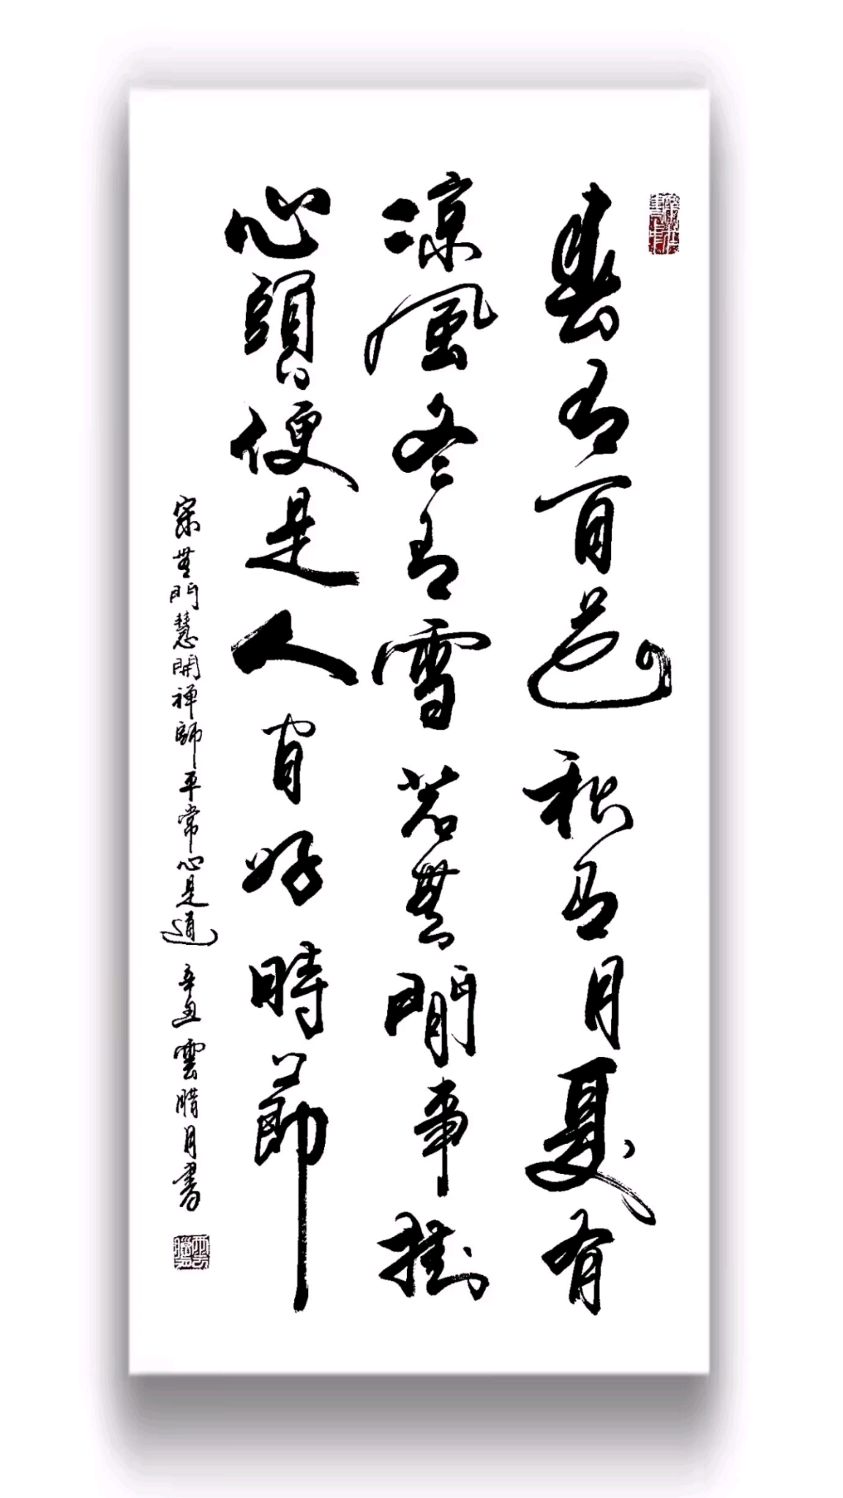 春有百花秋有月夏有
涼風冬有雪若無閒事掛
心頭便是人间好時節
宋無門慧開禅師平常心是道 辛丑 雲腊月書